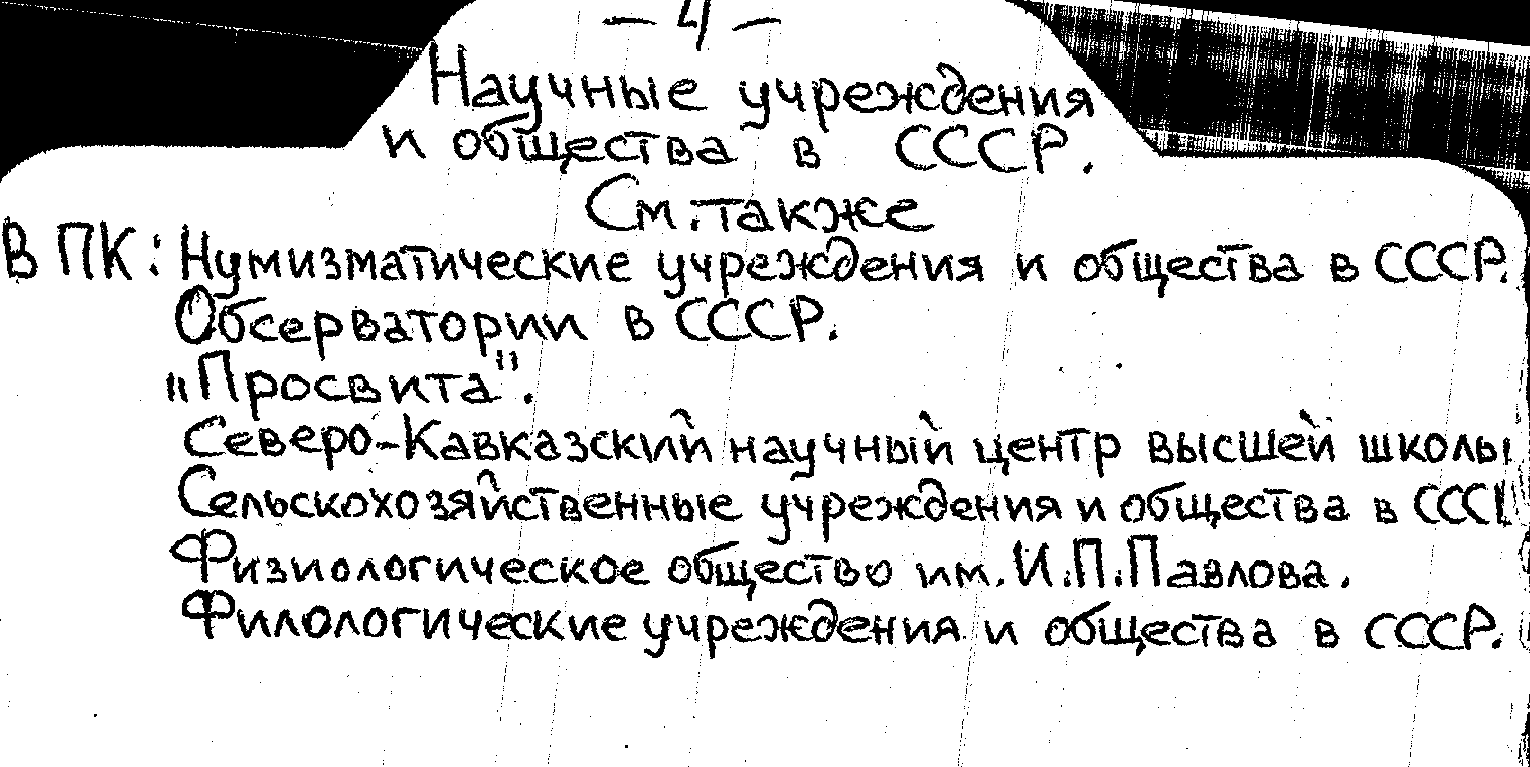 — 4 —
Научные учреждения
и общества в СССР.
См. также
В ПК: Нумизматические учреждения и общества в СССР.
Обсерватории в СССР.
„Просвита".
Северо-Кавказский научный центр высшей школы
Сельскохозяйственные учреждения и общества в СССР
Физиологическое общество им. И.П. Павлова.
Филологические учреждения и общества в СССР.